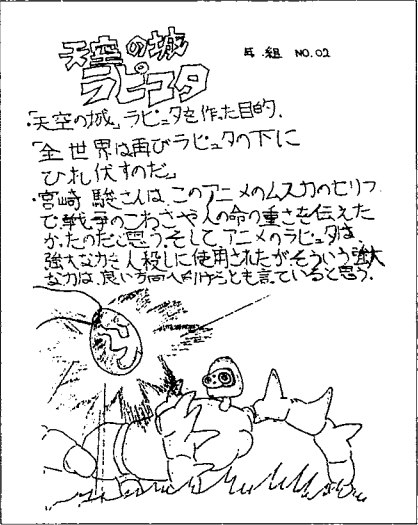 天空の城
ラピュタ
年 組 NO.02
・「天空の城」ラピュタを作った目的.
「全世界は再びラピュタの下に
ひれ伏すのだ。」
・宮崎駿さんは、このアニメのムスカのセリフ
で戦争のこわさや人の命の重さを伝えた
かったのだと思う。そして アニメのラピュタは
強大な力を人殺しに使用されたが、そういう強大
な力は、良い方向へ
とも言っていると思う.